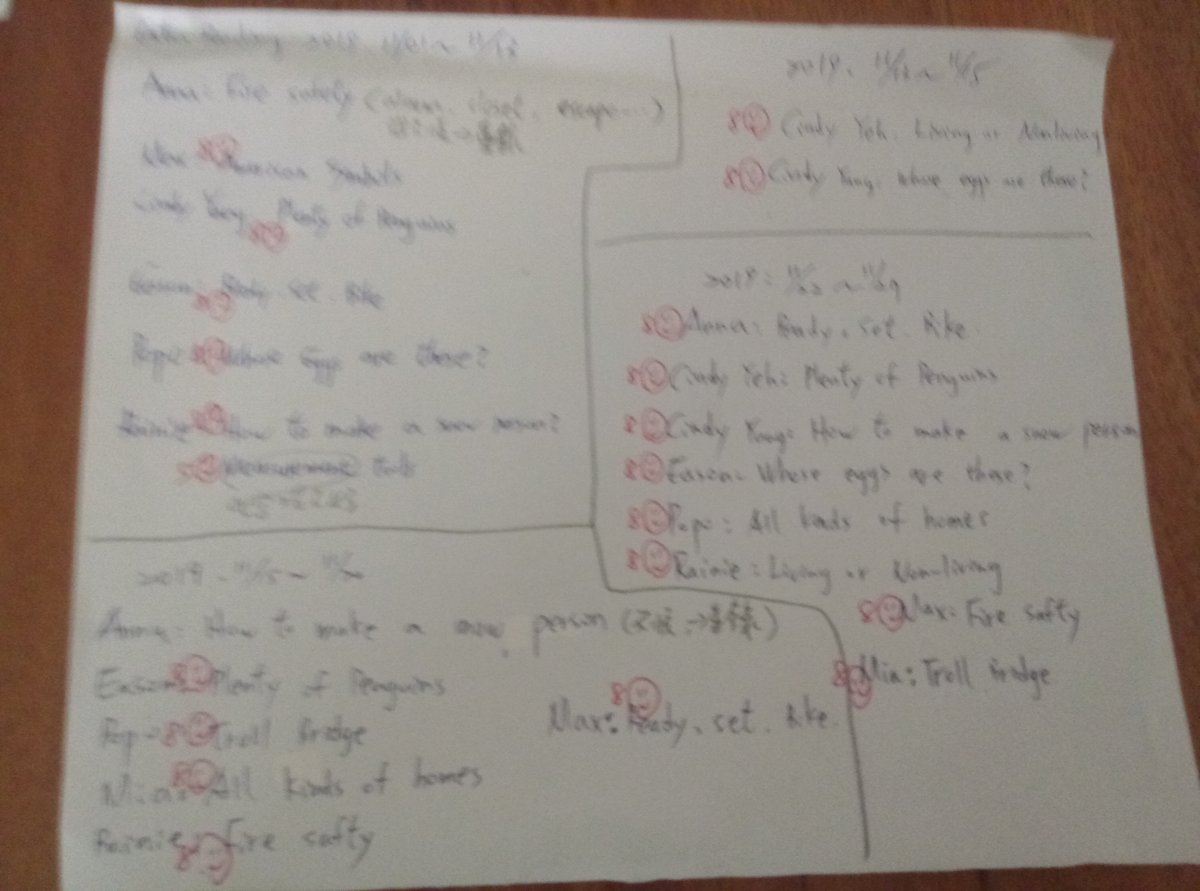 Anna: Fire safety (alarm, closet, escape...)
Max: 8 American Symbols
Cindy Yang: Plenty of Penguins
8
Eason: Ready. set. Bike
8
Pope: 8 Whose Eggs are these?
Rainie: 8 How to make a snow person?
8 tools
2019. 11/15 ~
Anna: How to make a snow person
Eason: 8 Plenty of Penguins
Pop 8 Troll Bridge
Mia: 8 All kinds of homes
Rainie: Fire safty
8
8
Max: Ready. set. Bike.
2019.
8 Cindy Yeh. Living or Nonliving
8 Cindy Yang. Whose eggs are these?
2019.
8 Anna: Ready. set. Bike.
8 Cindy Yeh: Plenty of Penguins
8 Cindy Yang: How to make a snow person
8 Eason: Whose eggs are these?
8 Pope: All kinds of homes
8 Rainie: Living or Non-living
8 Max: Fire safty
8 Mia: Troll Bridge